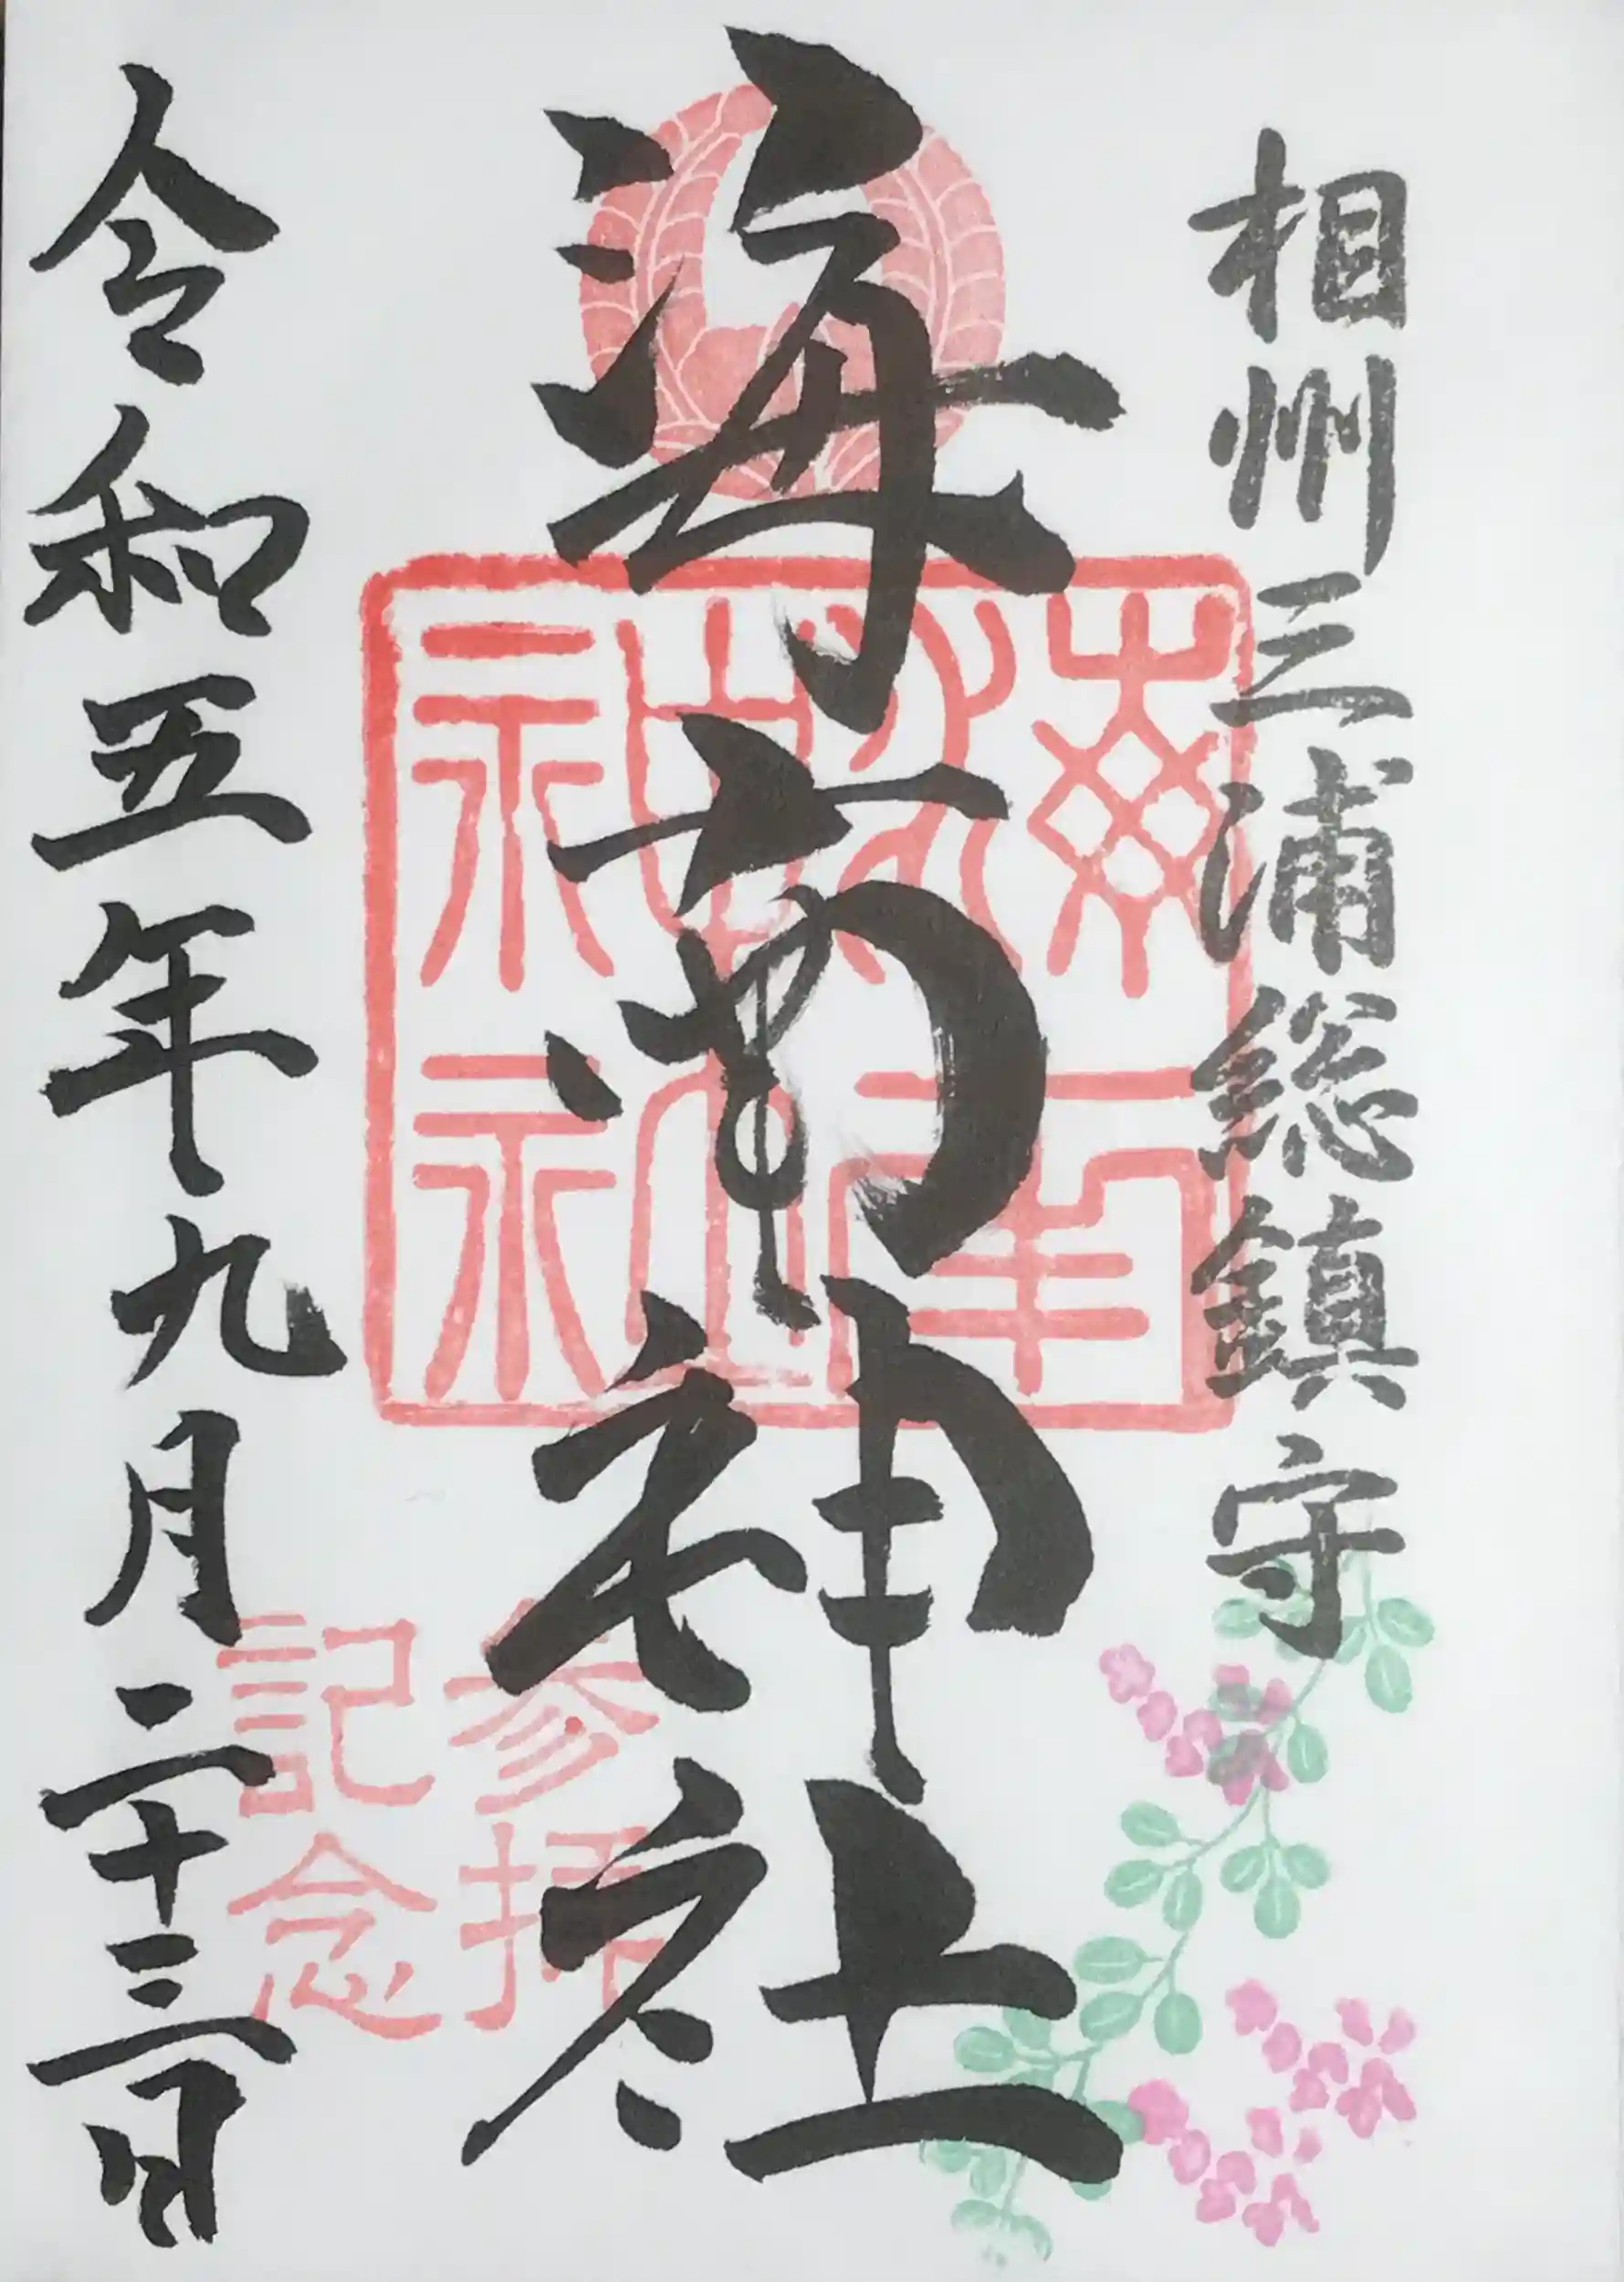 相州三浦総鎮守
海南神社
海南神社
参拝
記念
令和五年九月二十三日